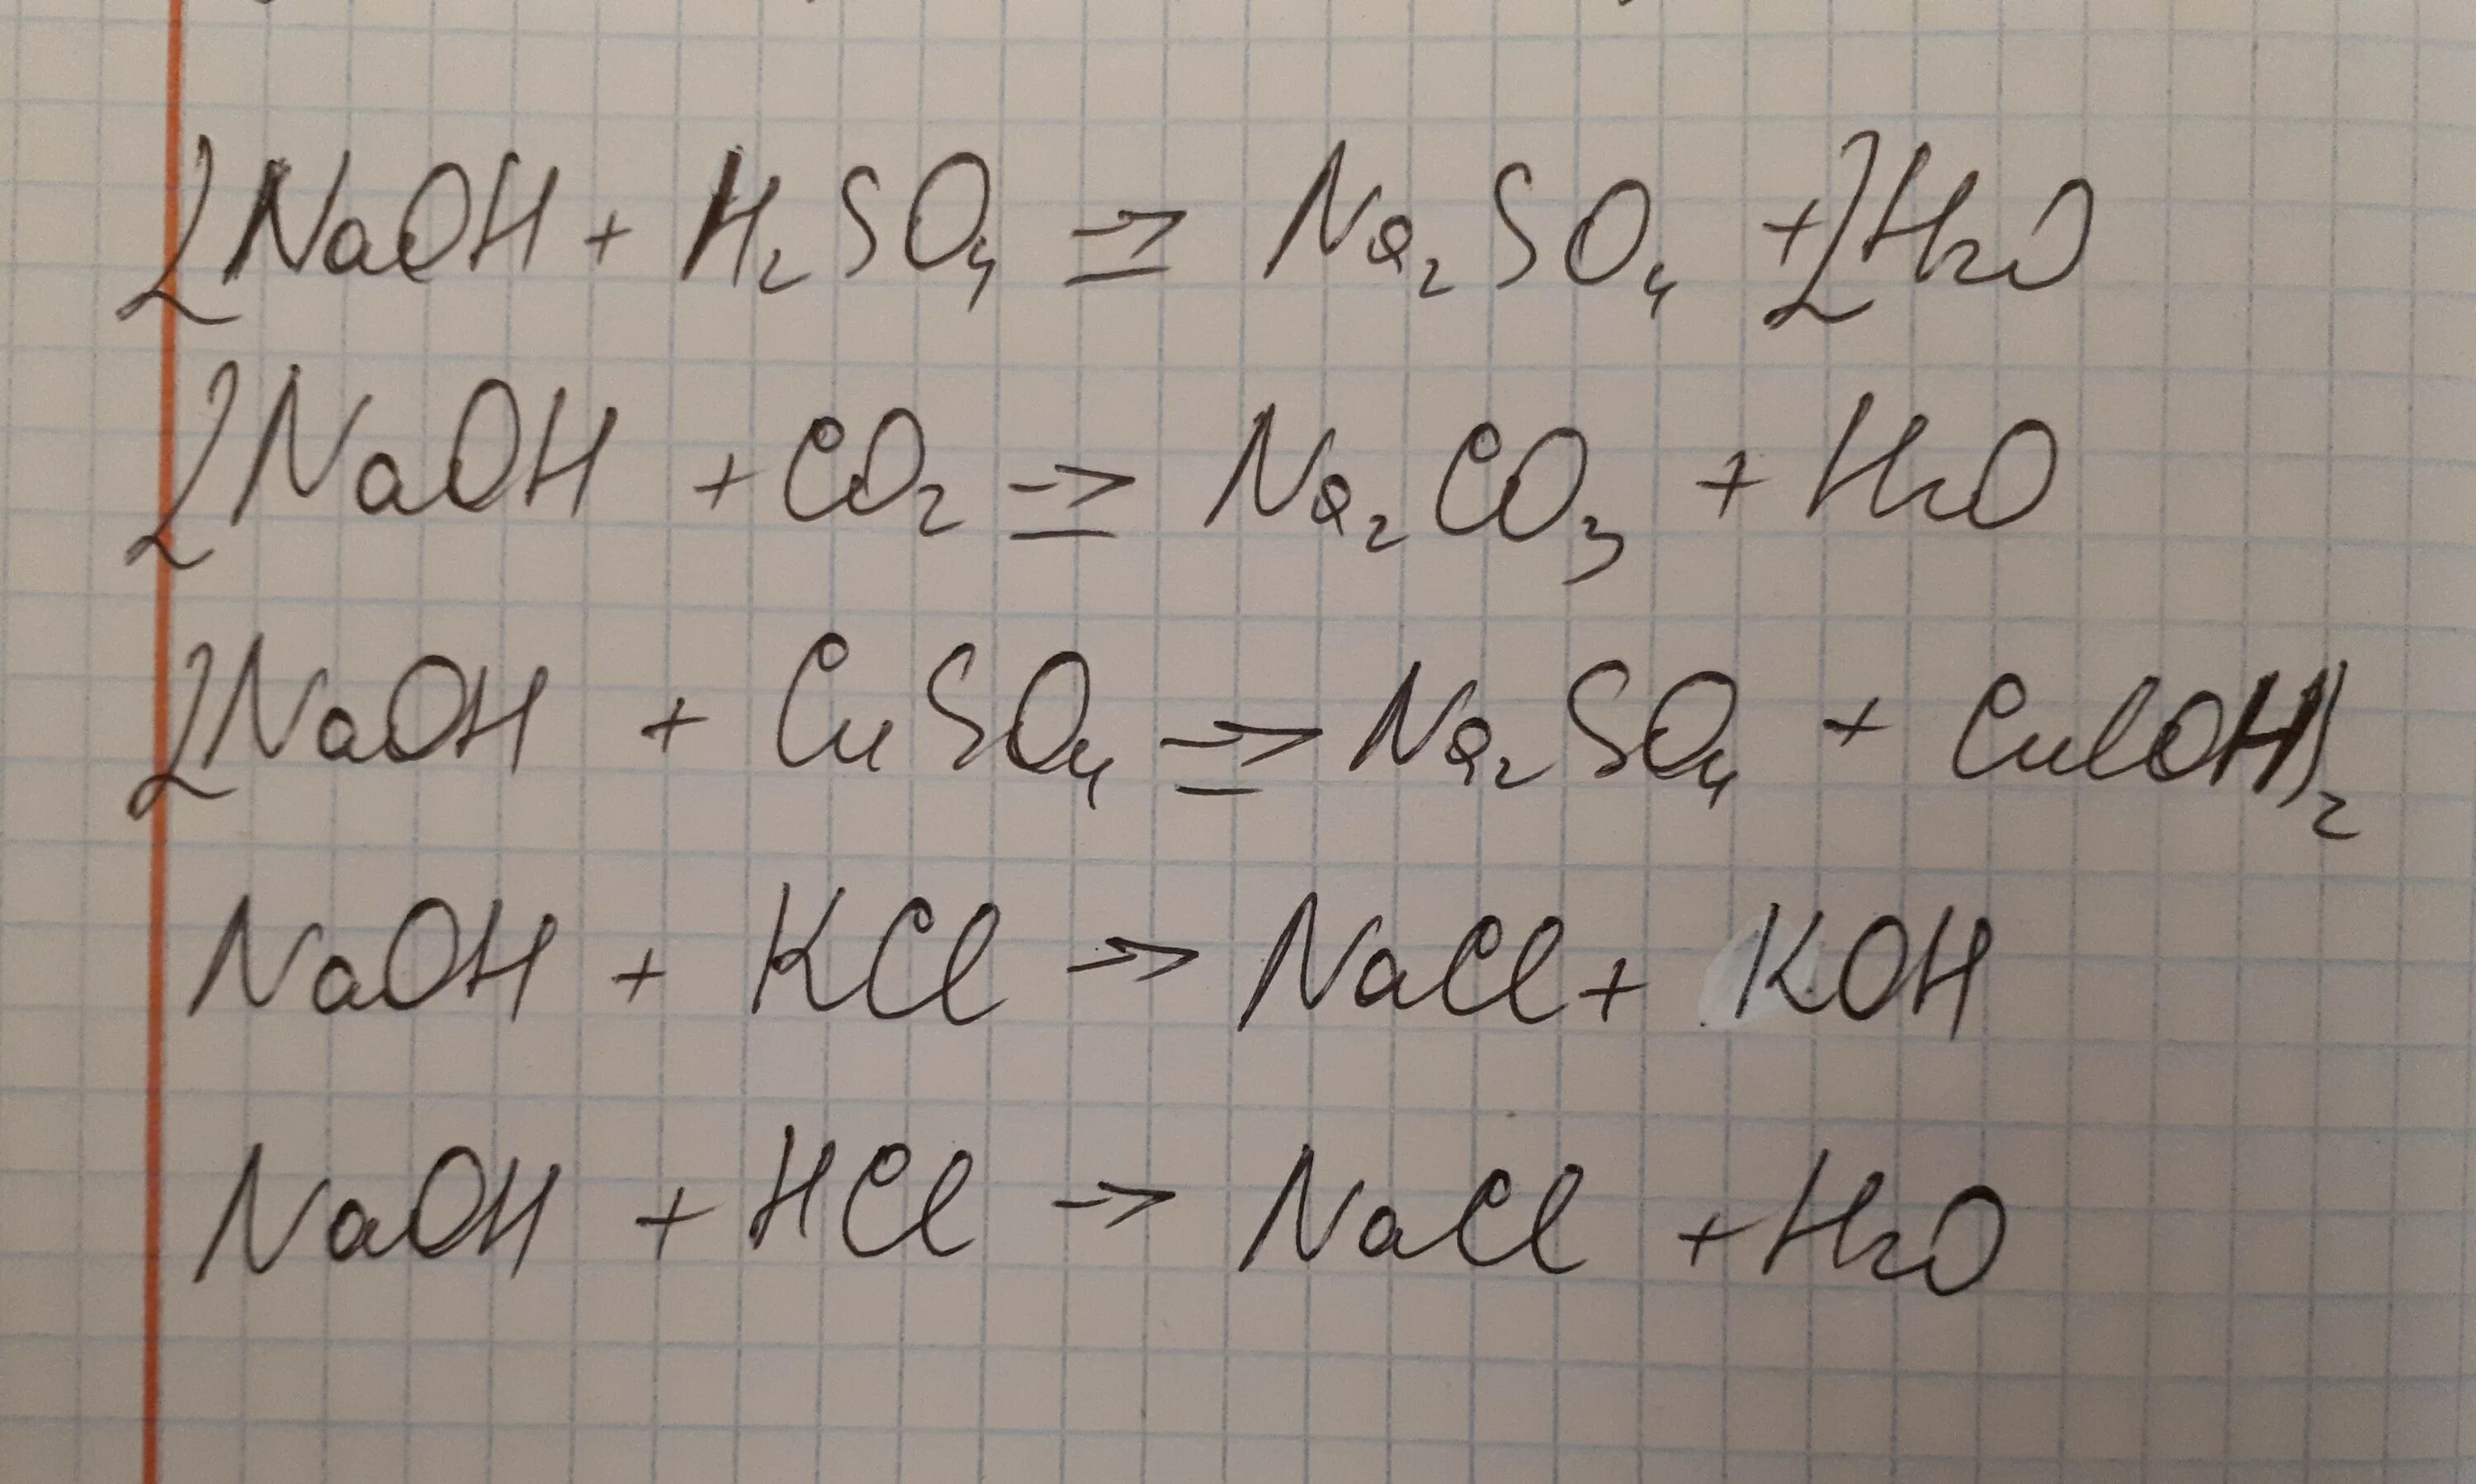 2NaOH + H₂SO₄ => Na₂SO₄ + 2H₂O
2NaOH + CO₂ => Na₂CO₃ + H₂O
2NaOH + CuSO₄ => Na₂SO₄ + Cu(OH)₂
NaOH + KCl -> NaCl + KOH
NaOH + HCl -> NaCl + H₂O